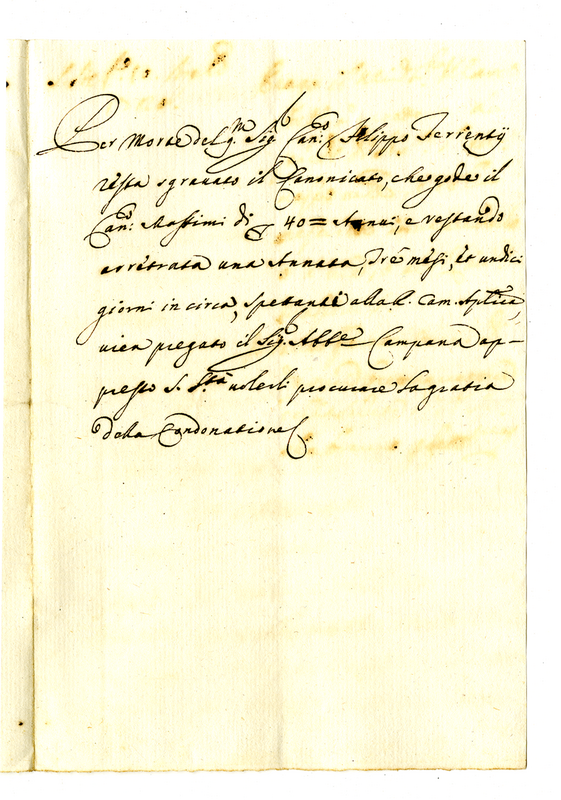 Per Morte del q.m Sig.r Can.co Filippo Terrentij
resta sgravato il Canonicato, che gode il
Can.co Massimi di 40 = Annui, e restando
arretrata una Annata, Tre mesi, et undici
giorni in circa, spetanti alla R. Cam. Aplica,
vien pregato il Sig.r Abbe Campana ap-
presso S. Stà volerli procurare la gratia
della Condonatione